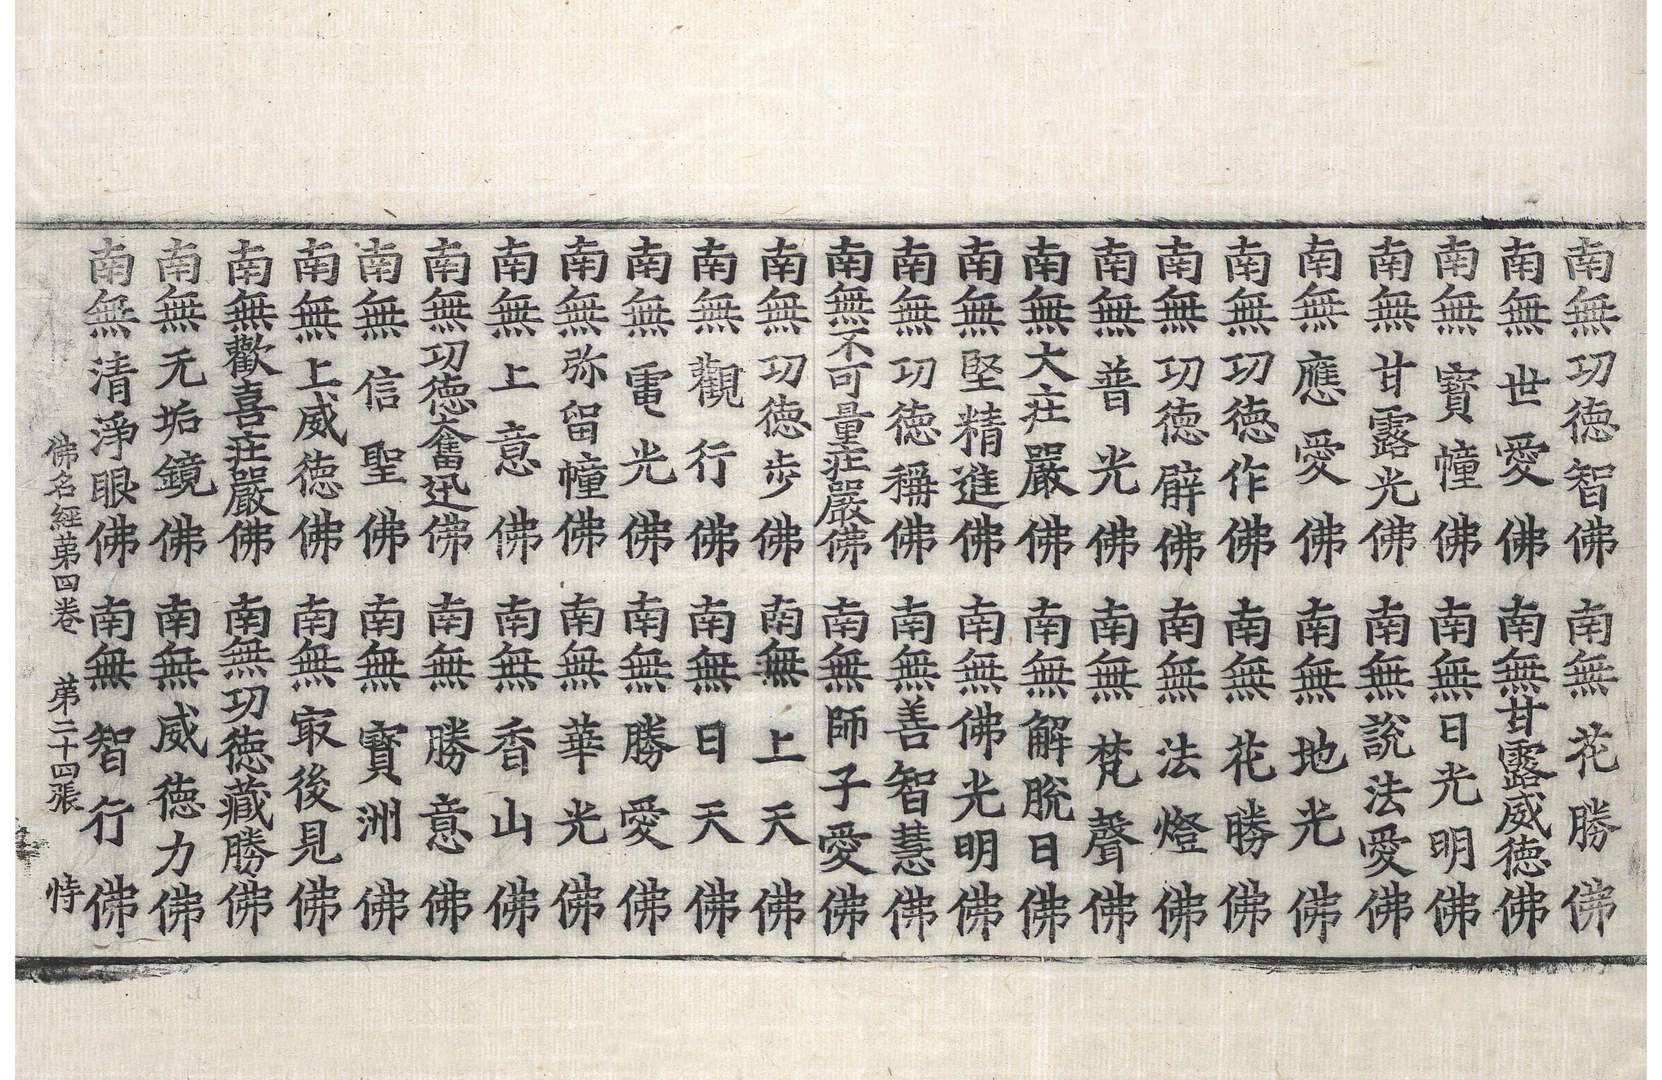 南無功德智佛南無花勝佛
南無世愛佛南無甘露威德佛
南無寶幢佛南無日光明佛
南無甘露光佛南無說法愛佛
南無應愛佛南無地光佛
南無功德作佛南無花勝佛
南無功德辟佛南無法燈佛
南無普光佛南無梵聲佛
南無大莊嚴佛南無解脫日佛
南無堅精進佛南無佛光明佛
南無功德稱佛南無善智慧佛
南無不可量莊嚴佛南無師子愛佛
南無功德步佛南無上天佛
南無觀行佛南無日天佛
南無電光佛南無勝愛佛
南無弥留幢佛南無華光佛
南無上意佛南無香山佛
南無功德奮迅佛南無勝意佛
南無信聖佛南無寶洲佛
南無上威德佛南無㝡後見佛
南無歡喜莊嚴佛南無功德藏勝佛
南無无垢鏡佛南無威德力佛
南無清淨眼佛南無智行佛
佛名經第四卷 第二十四張 恃